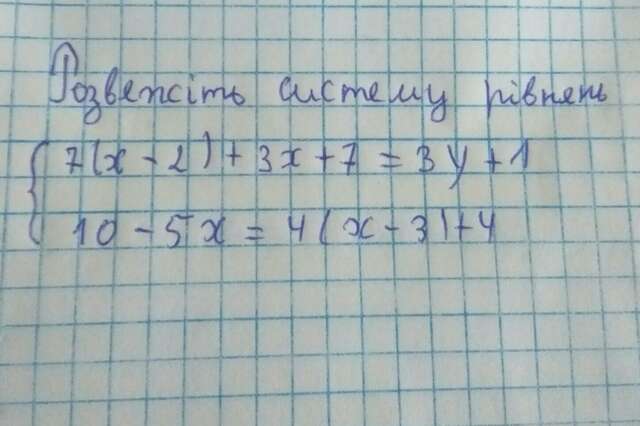 Розвежіть систему рівнень
7(x-2)+3x+7=3y+1
10-5x=4(x-3)+4